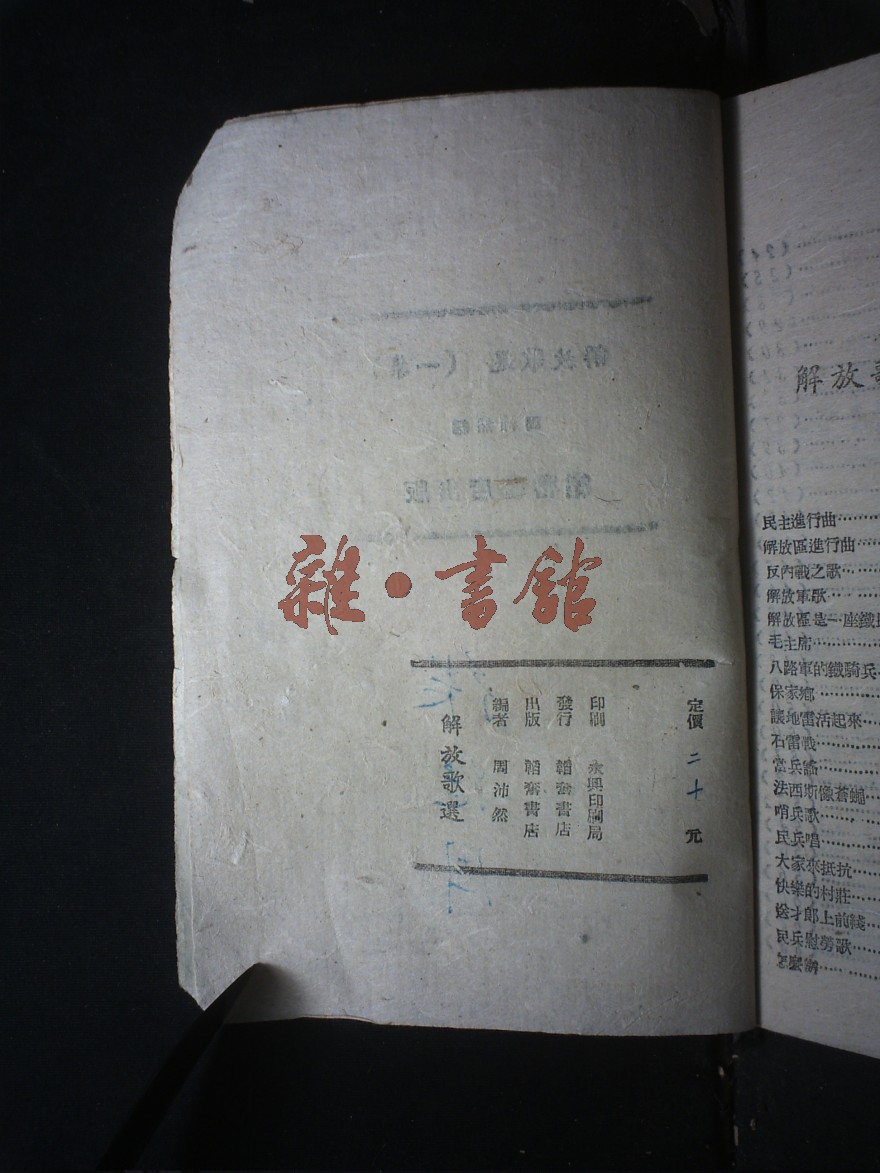 雜·書館
解放歌選
編者 周沛然
出版 韜奮書店
發行 韜奮書店
印刷 永興印刷局
定價 二十 元
解放
民主進行曲
解放區進行曲
反內戰之歌
解放軍歌
解放區是一座鐵
毛主席
八路軍的鐵騎兵
保家鄉
讓地雷活起來
石雷戰
當兵謠
法西斯像蒼蠅
哨兵歌
民兵唱
大家來抵抗
快樂的村莊
送才郎上前綫
民兵慰勞歌
怎麼辦